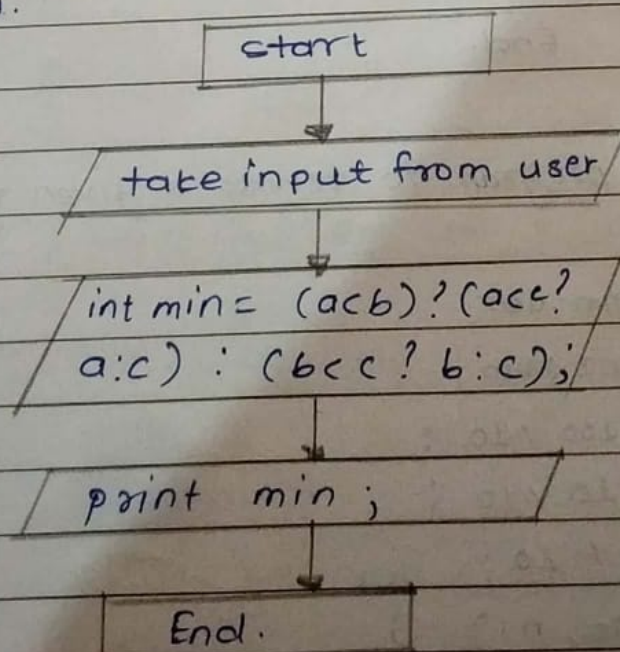 start
take input from user
int min = (a<b)?(a<c?
a:c) : (b<c? b:c);
print min ;
End.